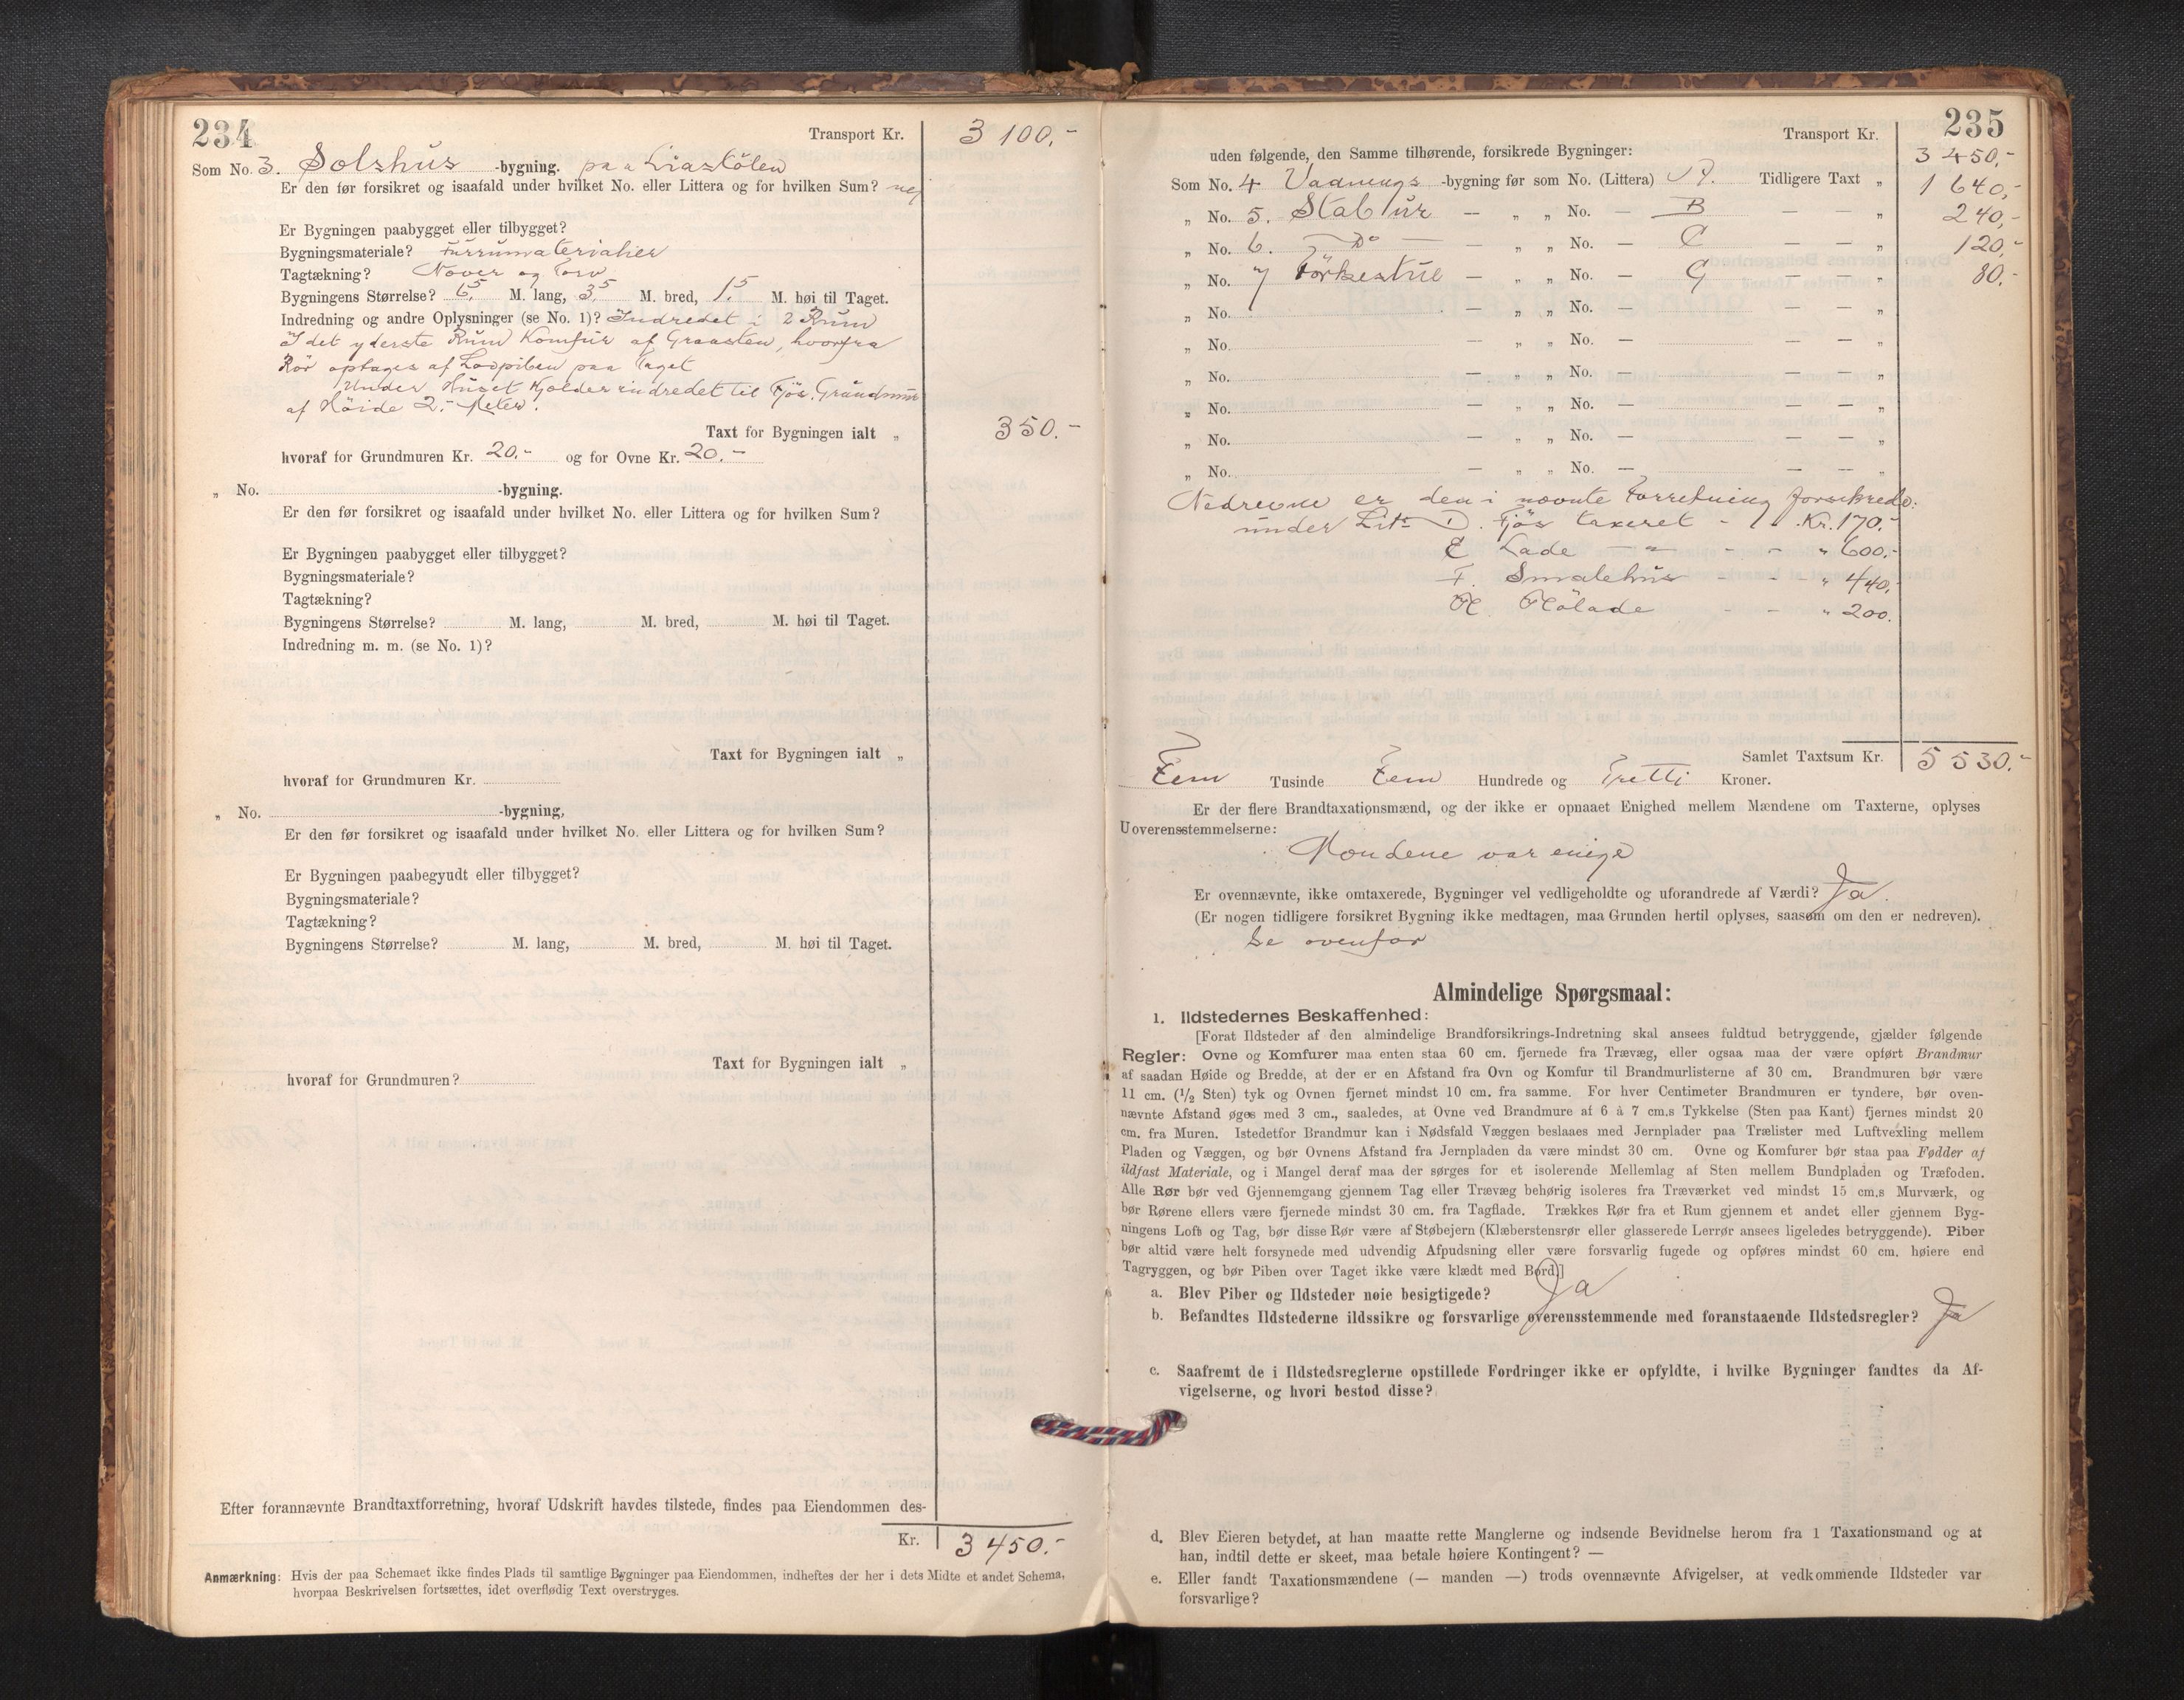 234
Transport Kr. 3 100.-
Som No. 3. Solshus -bygning. paa Liastölen
Er den før forsikret og isaafald under hvilket No. eller Littera og for hvilken Sum? nej
Er Bygningen paabygget eller tilbygget?
Bygningsmateriale? Furrumaterialier
Tagtækning? Næver og Torv
Bygningens Størrelse? 6,5 M. lang, 3,5 M. bred, 1,5 M. høi til Taget.
Indredning og andre Oplysninger (se No. 1)? Indredet i 2 Rum
I det yderste Rum Komfur af Graasten, hvorfra
Rör optages af Lodpiben paa Taget
Under Huset Kjelder indredet til Fjös. Grundmur
af Höide 2.- Meter.
Taxt for Bygningen ialt „ 350.-
hvoraf for Grundmuren Kr. 20.- og for Ovne Kr. 20.-
„ No. -bygning.
Er den før forsikret og isaafald under hvilket No. eller Littera og for hvilken Sum?
Er Bygningen paabygget eller tilbygget?
Bygningsmateriale?
Tagtækning?
Bygningens Størrelse? M. lang, M. bred, M. høi til Taget.
Indredning m. m. (se No. 1)?
Taxt for Bygningen ialt „
hvoraf for Grundmuren Kr.
„ No. -bygning,
Er den før forsikret og isaafald under hvilket No. eller Littera og for hvilken Sum?
Er Bygningen paabegyudt eller tilbygget?
Bygningsmateriale?
Tagtækning?
Bygningens Størrelse? M. lang, M. bred, M. høi til Taget.
Taxt for Bygningen ialt „
hvoraf for Grundmuren?
Efter forannævnte Brandtaxtforretning, hvoraf Udskrift havdes tilstede, findes paa Eiendommen des-
Kr. 3 450.-
Anmærkning: Hvis der paa Schemaet ikke findes Plads til samtlige Bygninger paa Eiendommen, indheftes der her i dets Midte et andet Schema,
hvorpaa Beskrivelsen fortsættes, idet overflødig Text overstryges.
235
Transport Kr. 3 450.-
uden følgende, den Samme tilhørende, forsikrede Bygninger:
Som No. 4 Vaanings -bygning før som No. (Littera) A. Tidligere Taxt „ 1 640,-
„ No. 5. Stabur — „ „ No. — B — — „ 240,-
„ No. 6. Do — „ „ No. — C — — „ 120,-
„ No. 7 Törkestue — „ „ No. — G — — „ 80.-
„ No. — „ „ No. — — — „
„ No. — „ „ No. — — — „
„ No. — „ „ No. — — — „
„ No. — „ „ No. — — — „
„ No. — „ „ No. — — — „
„ No. — „ „ No. — — — „
Nedrevne er den i nævnte Forretning forsikrede:
under Litr D. Fjös taxeret - Kr. 170.-
E Lade — " — - - " 600.-
F. Smalehus - - " 440.-
H. Hölade - - " 200.
Samlet Taxtsum Kr. 5 530.-
Fem Tusinde Fem Hundrede og Tretti Kroner.
Er der flere Brandtaxationsmænd, og der ikke er opnaaet Enighed mellem Mændene om Taxterne, oplyses
Uoverensstemmelserne:
Mændene var enige
Er ovennævnte, ikke omtaxerede, Bygninger vel vedligeholdte og uforandrede af Værdi? Ja.
(Er nogen tidligere forsikret Bygning ikke medtagen, maa Grunden hertil oplyses, saasom om den er nedreven).
Se ovenfor
Almindelige Spørgsmaal:
1. Ildstedernes Beskaffenhed:
[Forat Ildsteder af den almindelige Brandforsikrings-Indretning skal ansees fuldtud betryggende, gjælder følgende
Regler: Ovne og Komfurer maa enten staa 60 cm. fjernede fra Trævæg, eller ogsaa maa der være opført Brandmur
af saadan Høide og Bredde, at der er en Afstand fra Ovn og Komfur til Brandmurlisterne af 30 cm. Brandmuren bør være
11 cm. (1/2 Sten) tyk og Ovnen fjernet mindst 10 cm. fra samme. For hver Centimeter Brandmuren er tyndere, bør oven-
nævnte Afstand øges med 3 cm., saaledes, at Ovne ved Brandmure af 6 à 7 cm.s Tykkelse (Sten paa Kant) fjernes mindst 20
cm. fra Muren. Istedetfor Brandmur kan i Nødsfald Væggen beslaaes med Jernplader paa Trælister med Luftvexling mellem
Pladen og Væggen, og bør Ovnens Afstand fra Jernpladen da være mindst 30 cm. Ovne og Komfurer bør staa paa Fødder af
ildfast Materiale, og i Mangel deraf maa der sørges for et isolerende Mellemlag af Sten mellem Bundpladen og Træfoden.
Alle Rør bør ved Gjennemgang gjennem Tag eller Trævæg behørig isoleres fra Træværket ved mindst 15 cm.s Murværk, og
bør Rørene ellers være fjernede mindst 30 cm. fra Tagflade. Trækkes Rør fra et Rum gjennem et andet eller gjennem Byg-
ningens Loft og Tag, bør disse Rør være af Støbejern (Klæberstensrør eller glasserede Lerrør ansees ligeledes betryggende). Piber
bør altid være helt forsynede med udvendig Afpudsning eller være forsvarlig fugede og opføres mindst 60 cm. høiere end
Tagryggen, og bør Piben over Taget ikke være klædt med Bord.]
a. Blev Piber og Ildsteder nøie besigtigede? Ja
b. Befandtes Ildstederne ildssikre og forsvarlige øverensstemmende med foranstaaende Ildstedsregler? Ja
c. Saafremt de i Ildstedsreglerne opstillede Fordringer ikke er opfyldte, i hvilke Bygninger fandtes da Af-
vigelserne, og hvori bestod disse?
d. Blev Eieren betydet, at han maatte rette Manglerne og indsende Bevidnelse herom fra 1 Taxationsmand og at
han, indtil dette er skeet, maa betale høiere Kontingent? —
e. Eller fandt Taxationsmændene (— manden —) trods ovennævnte Afvigelser, at vedkommende Ildsteder var
forsvarlige?